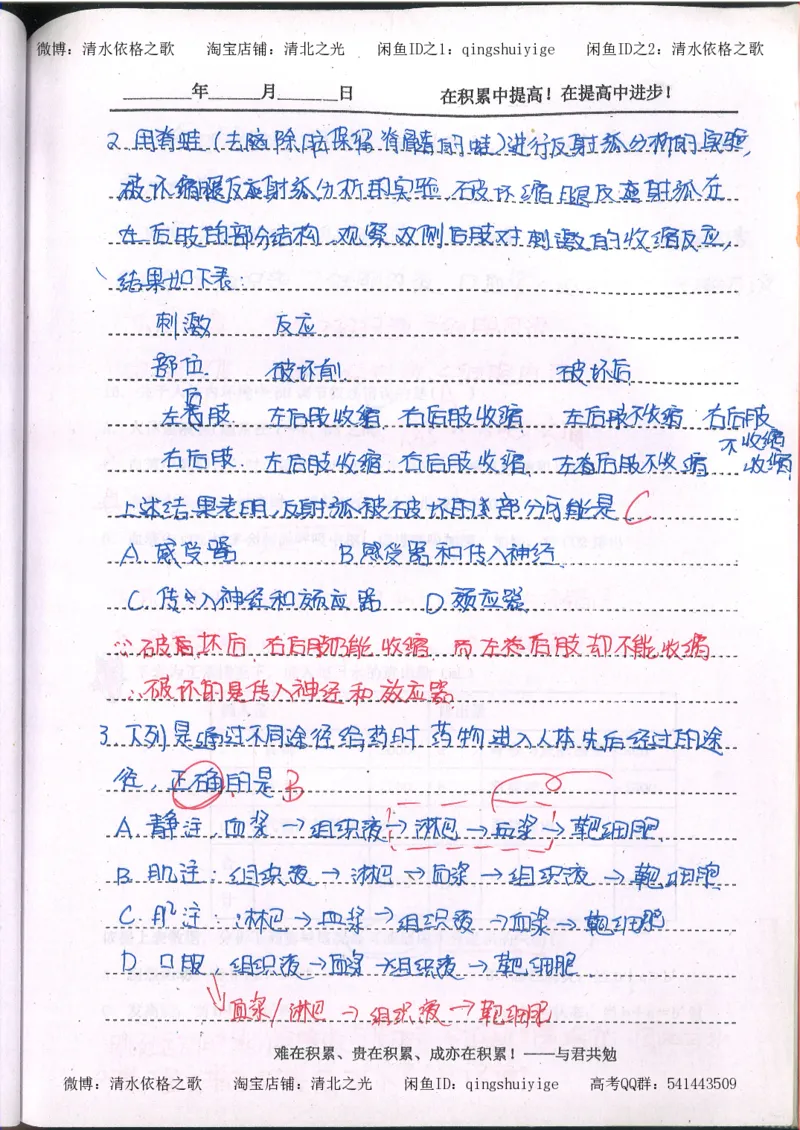 微博：清水依格之歌 淘宝店铺：清北之光 闲鱼ID之1：qingshuiyige 闲鱼ID之2：清水依格之歌
年 月 日 在积累中提高！在提高中进步！
2. 用脊蛙（去脑除脑保留脊髓的蛙）进行反射弧分析的实验,
破坏缩腿反应射弧分析的实验,破坏缩腿反应射弧在
左后肢的部分结构,观察双侧后肢对刺激的收缩反应,
结果如下表:
刺激 反应
部位. 破坏前 破坏后
左后肢 左后肢收缩 右后肢收缩 左后肢不收缩 右后肢
不收缩
右后肢. 左后肢收缩 右后肢收缩 左后肢不收缩 收缩
上述结果表明,反射弧被破坏的部分可能是 C
A. 感受器 B.感受器和传入神经
C. 传入神经和效应器 D. 效应器
∵破坏后 右后肢仍能收缩 而左后肢却不能收缩
∴破坏的是传入神经和效应器
3. 下列是通过不同途径给药时 药物进入人体先后经过的途
径,正确的是 B
A. 静注,血浆→组织液→淋巴→血浆→靶细胞
B. 肌注:组织液→淋巴→血浆→组织液→靶细胞
C. 肌注:淋巴→血浆→组织液→血浆→靶细胞
D. 口服,组织液→血浆→组织液→靶细胞
血浆/淋巴→组织液→靶细胞
难在积累、贵在积累、成亦在积累！——与君共勉
微博：清水依格之歌 淘宝店铺：清北之光 闲鱼ID：qingshuiyige 高考QQ群：541443509